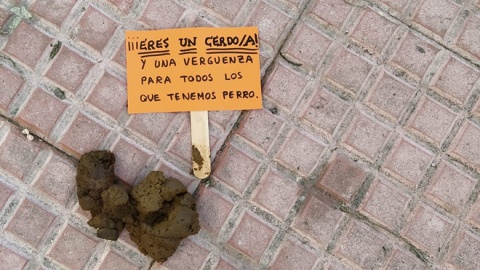 ¡¡¡ERES UN CERDO/A!
Y UNA VERGUENZA
PARA TODOS LOS
QUE TENEMOS PERRO.